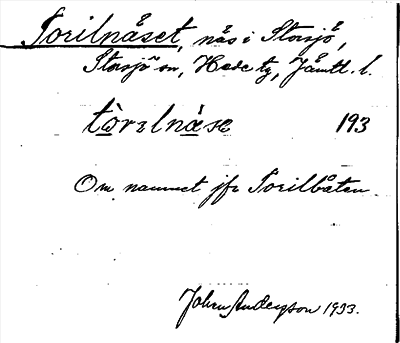 Torilnåset, nås i Storsjö,
Storsjö sn, Hede tg, Jämtl. l.
tòrɛlnåse 193
Om namnet jfr Torilbåten
Johan Anderson 1933.